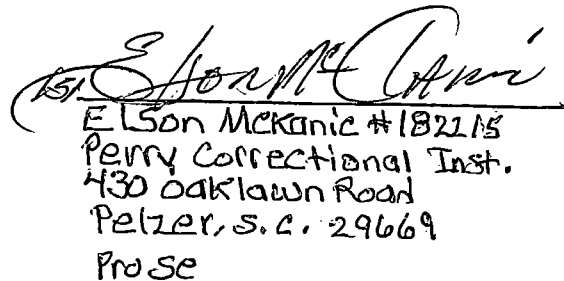 /s/ Elson Mc
Elson McKanic #182115
Perry Correctional Inst.
430 Oaklawn Road
Pelzer, S.C. 29669
Pro Se